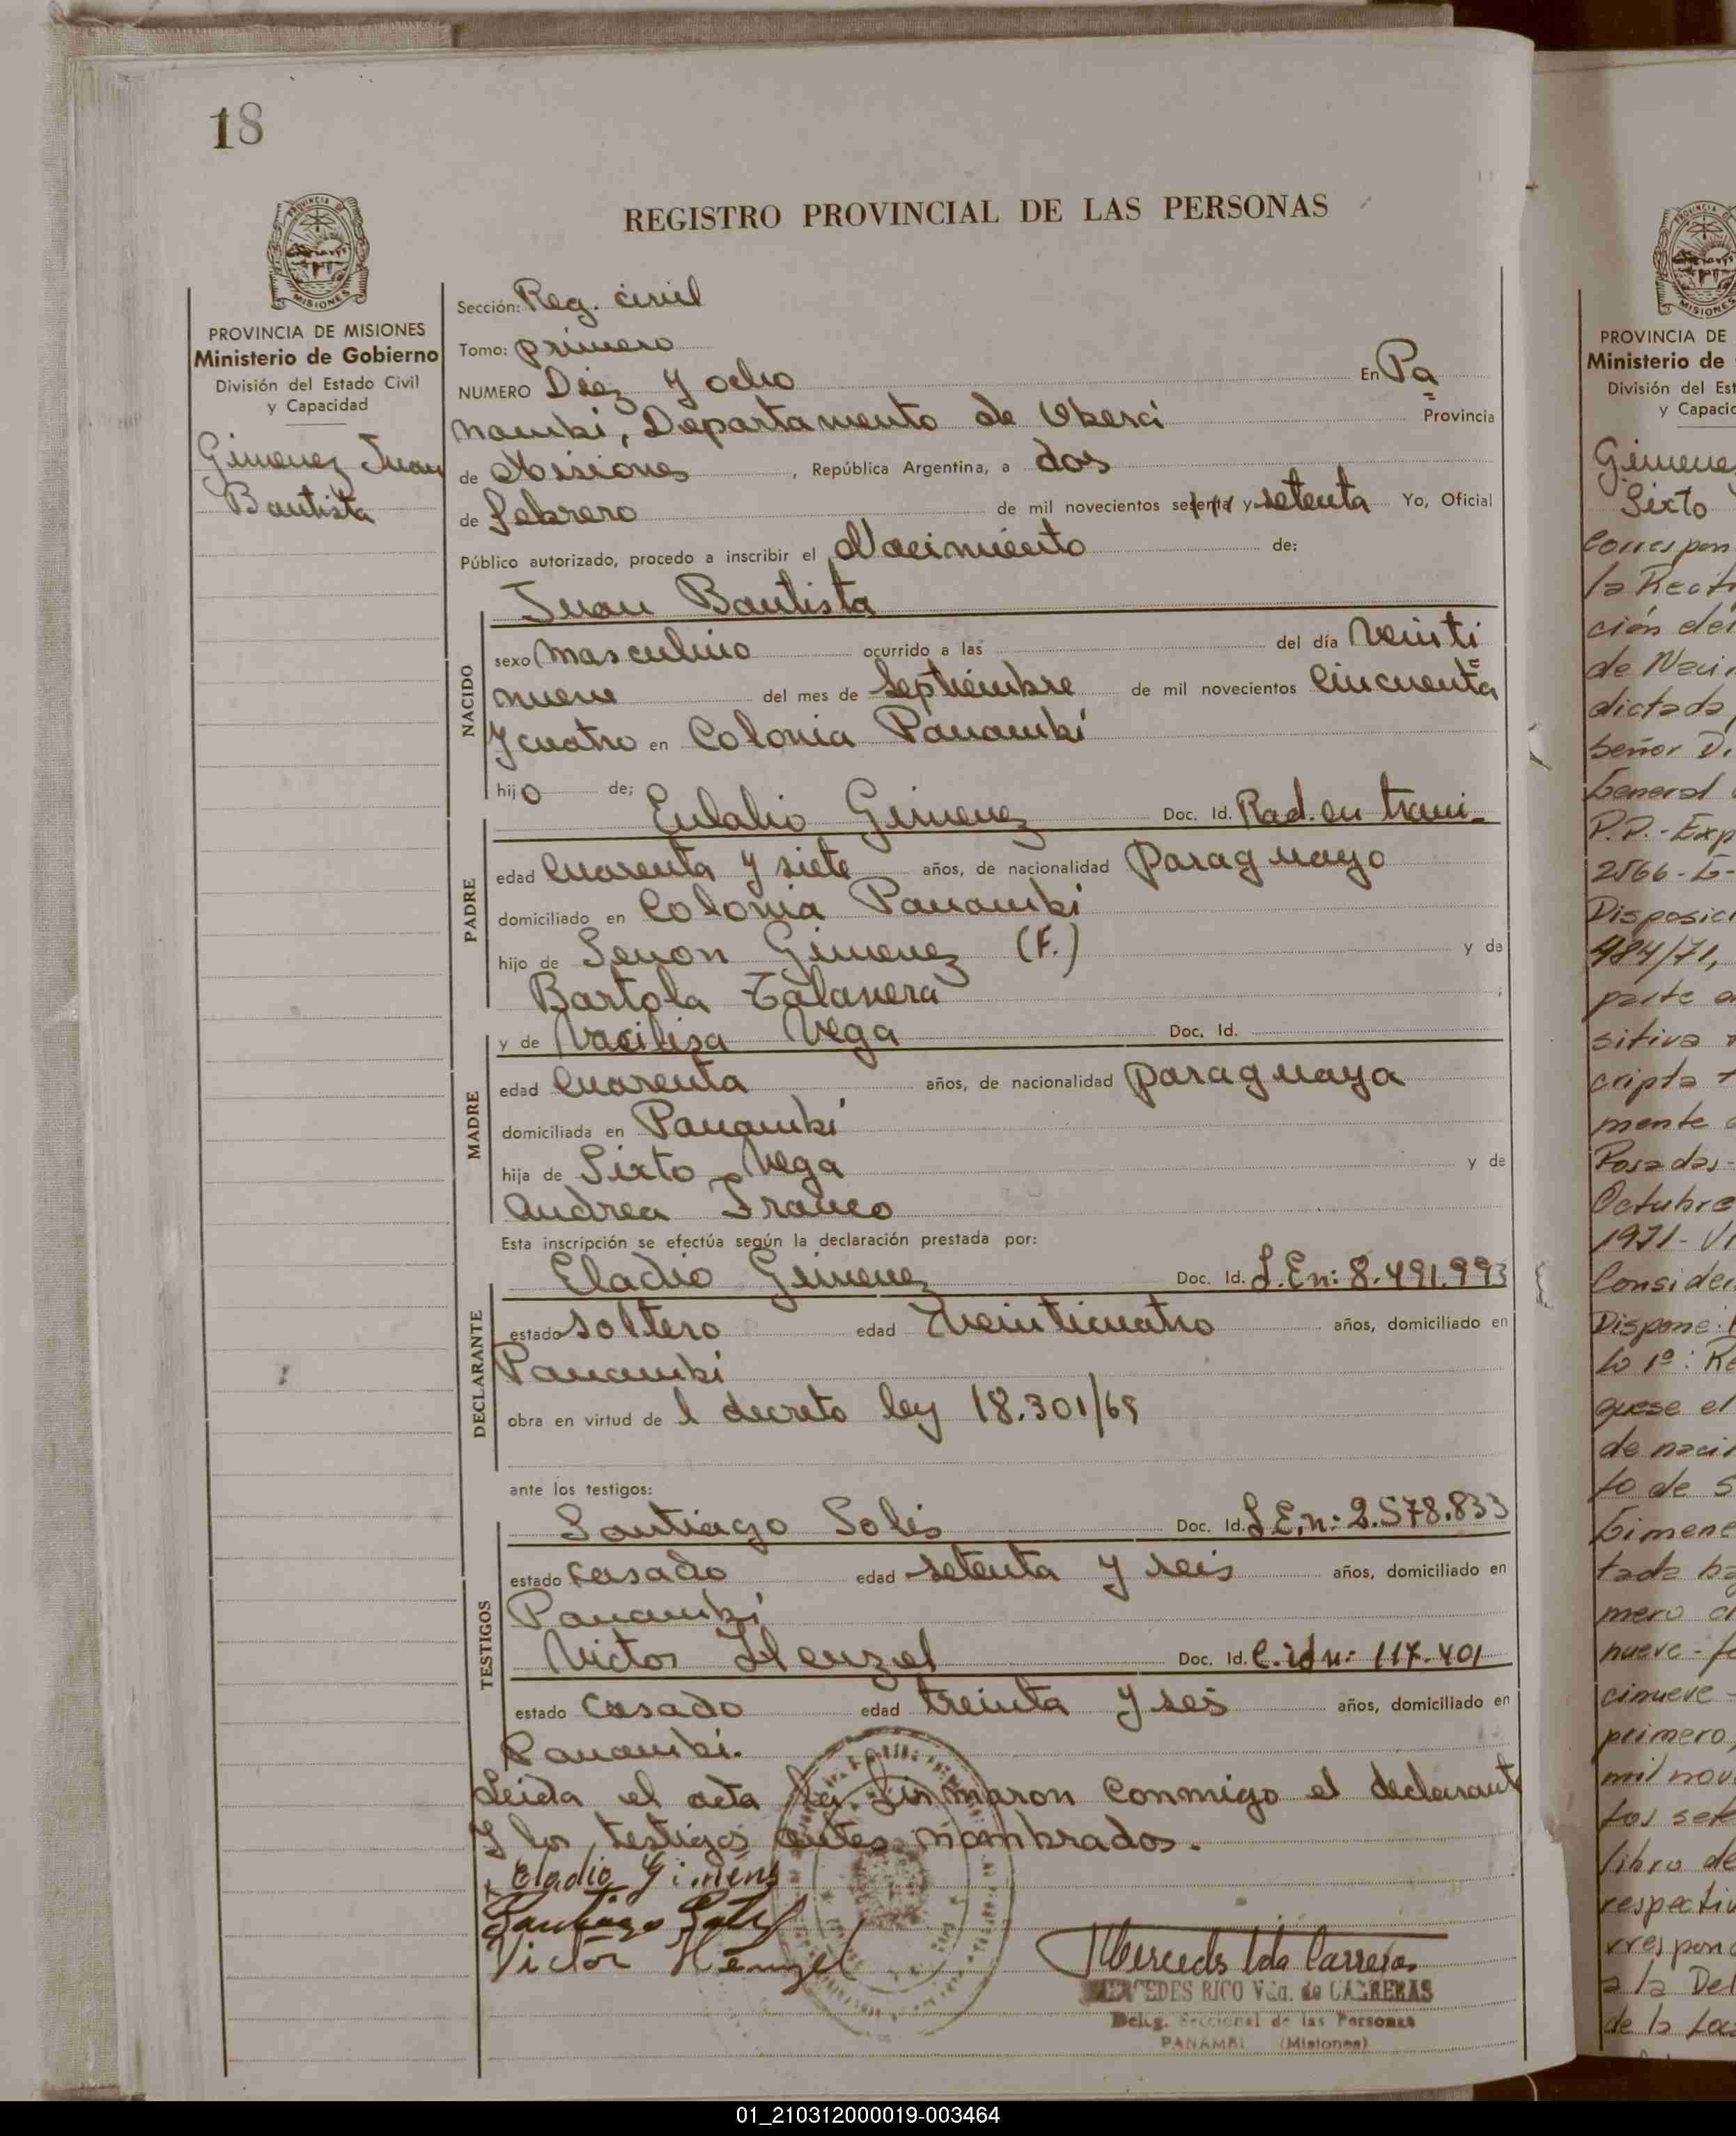 18
REGISTRO PROVINCIAL DE LAS PERSONAS
PROVINCIA DE MISIONES
Ministerio de Gobierno
División del Estado Civil
y Capacidad
Gimenez Juan
Bautista
Sección: Reg. civil
Tomo: primero
NUMERO Diez y ocho En Pa
nambi, Departamento de Oberá Provincia
de Misiones, República Argentina, a dos
de febrero de mil novecientos sesenta y setenta Yo, Oficial
Público autorizado, procedo a inscribir el Nacimiento de:
Juan Bautista
NACIDO
sexo masculino ocurrido a las del día veinti
nueve del mes de septiembre de mil novecientos cincuenta
y cuatro en Colonia Panambí
hijo de;
PADRE
Eulalio Gimenez Doc. Id. Rad. en trami-
edad cuarenta y siete años, de nacionalidad paraguayo
domiciliado en Colonia Panambí
hijo de Senon Gimenez (F.) y de
Bartola Talavera ;
MADRE
y de Vacilisa Vega Doc. Id.
edad cuarenta años, de nacionalidad paraguaya
domiciliada en Panambí
hija de Sixto Vega y de
Andrea Franco
Esta inscripción se efectúa según la declaración prestada por:
DECLARANTE
Eladio Gimenez Doc. Id. L.En: 8.491.993
estado soltero edad veinticuatro años, domiciliado en
Panambi
obra en virtud de l decreto ley 18.301/69
ante los testigos:
TESTIGOS
Santiago Solis Doc. Id. L.E.n: 2.578.833
estado casado edad setenta y seis años, domiciliado en
Panambí
Victor Henzel Doc. Id. C.idn: 117.401
estado casado edad treinta y seis años, domiciliado en
Panambi.
Leida el acta la firmaron conmigo el declarant
y los testigos antes nombrados.
Eladio Gimenz
Santiago Solis
Victor Henzel
Mercedes Vda Carreras
MERCEDES RICO Vda. de CARRERAS
Deleg. Seccional de las Personas
PANAMBI (Misiones)
PROVINCIA DE
Ministerio de
División del Est
y Capacid
Gimenez
Sixto
Corres pon
la Rectif
ción del
de Naci
dictada
Señor Di
General
P.P.-Exp
2566-G-
Disposici
484/71,
parte
sitiva
cripta
mente
Posadas-
Octubre
1971-Vi
Conside
Dispone:
lo 1º: Re
quese el
de naci
to de S
Gimene
tada ba
mero
nueve-fo
cinueve
primero,
mil nov
tos set
libro de
respectiv
rrespon
a la Del
de la Loc
01_210312000019-003464